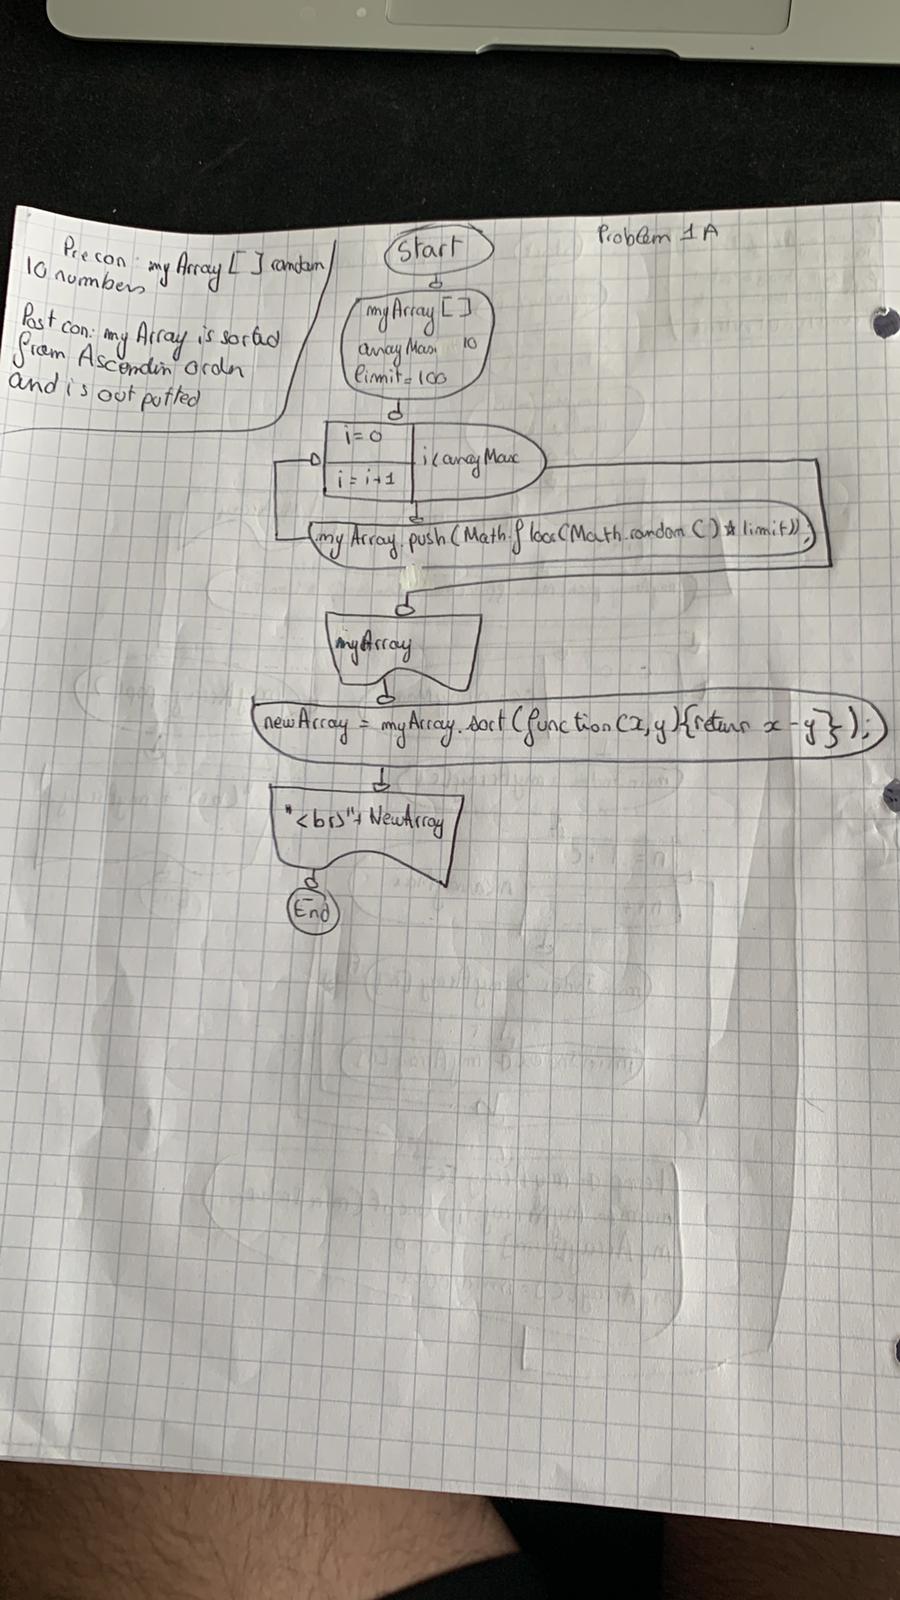 Problem 1A
Precon: myArray [ ] random
10 numbers
Post con: my Array is sorted
from Ascendin order
and is out putted
Start
myArray [ ]
arrayMax 10
limit = 100
i = 0
i = i+1
i < arrayMax
my Array.push(Math.floor(Math.random()*limit));
myArray
newArray = myArray.sort(function(x,y){return x-y});
"<br>"+ NewArray
End